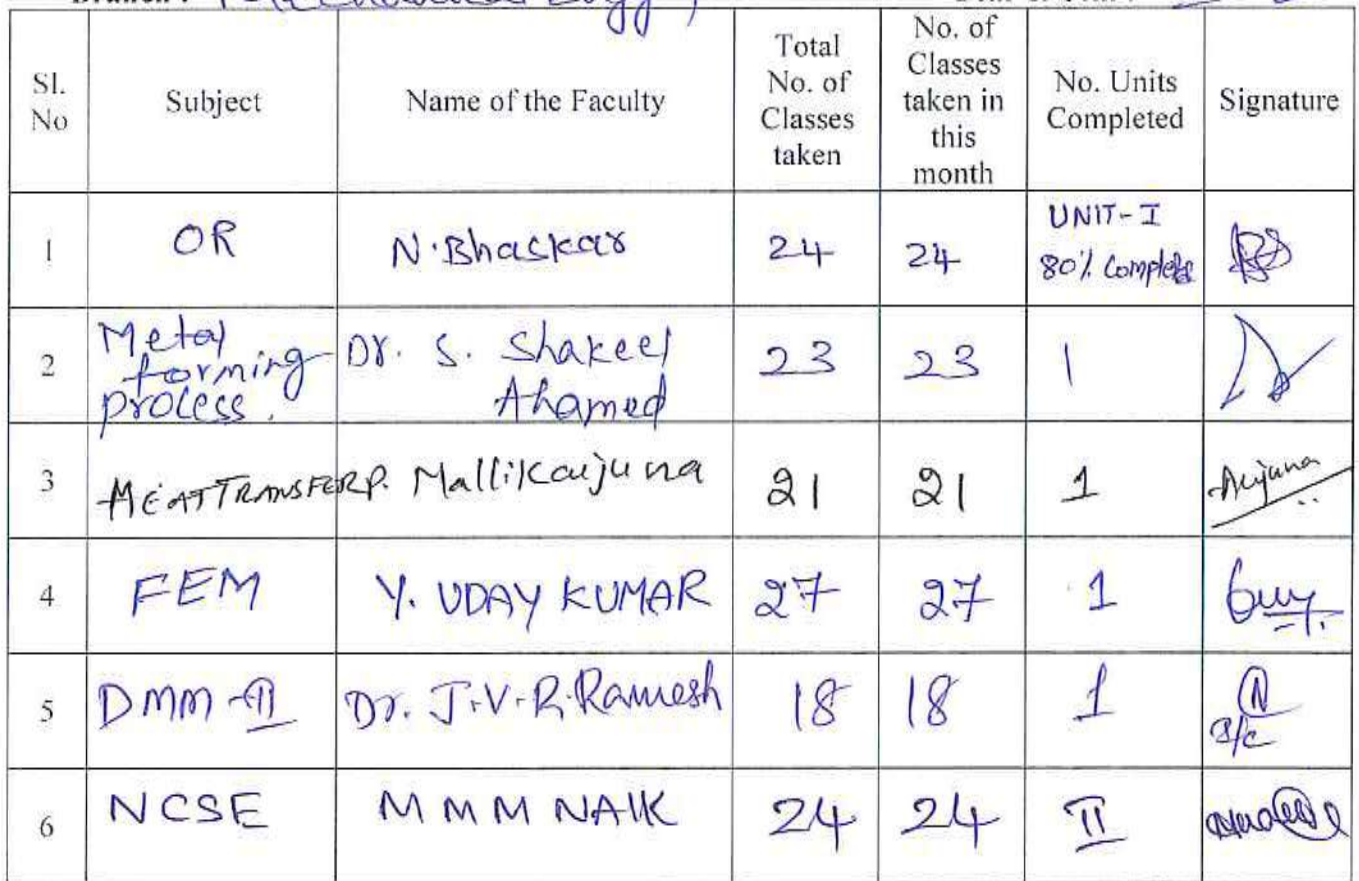 Sl. No Subject Name of the Faculty Total No. of Classes taken No. of Classes taken in this month No. Units Completed Signature
1 OR N. Bhaskar 24 24 UNIT-I 80% Complete
2 Metal forming process. Dr. S. Shakeel Ahamed 23 23 1
3 HEAT TRANSFER P. Mallikarjuna 21 21 1 Arjuna
4 FEM Y. UDAY KUMAR 27 27 1
5 DMM-II Dr. J.V.R. Ramesh 18 18 1
6 NCSE M M M NAIK 24 24 II